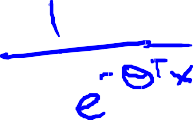 1
e^{-Θ^T x}